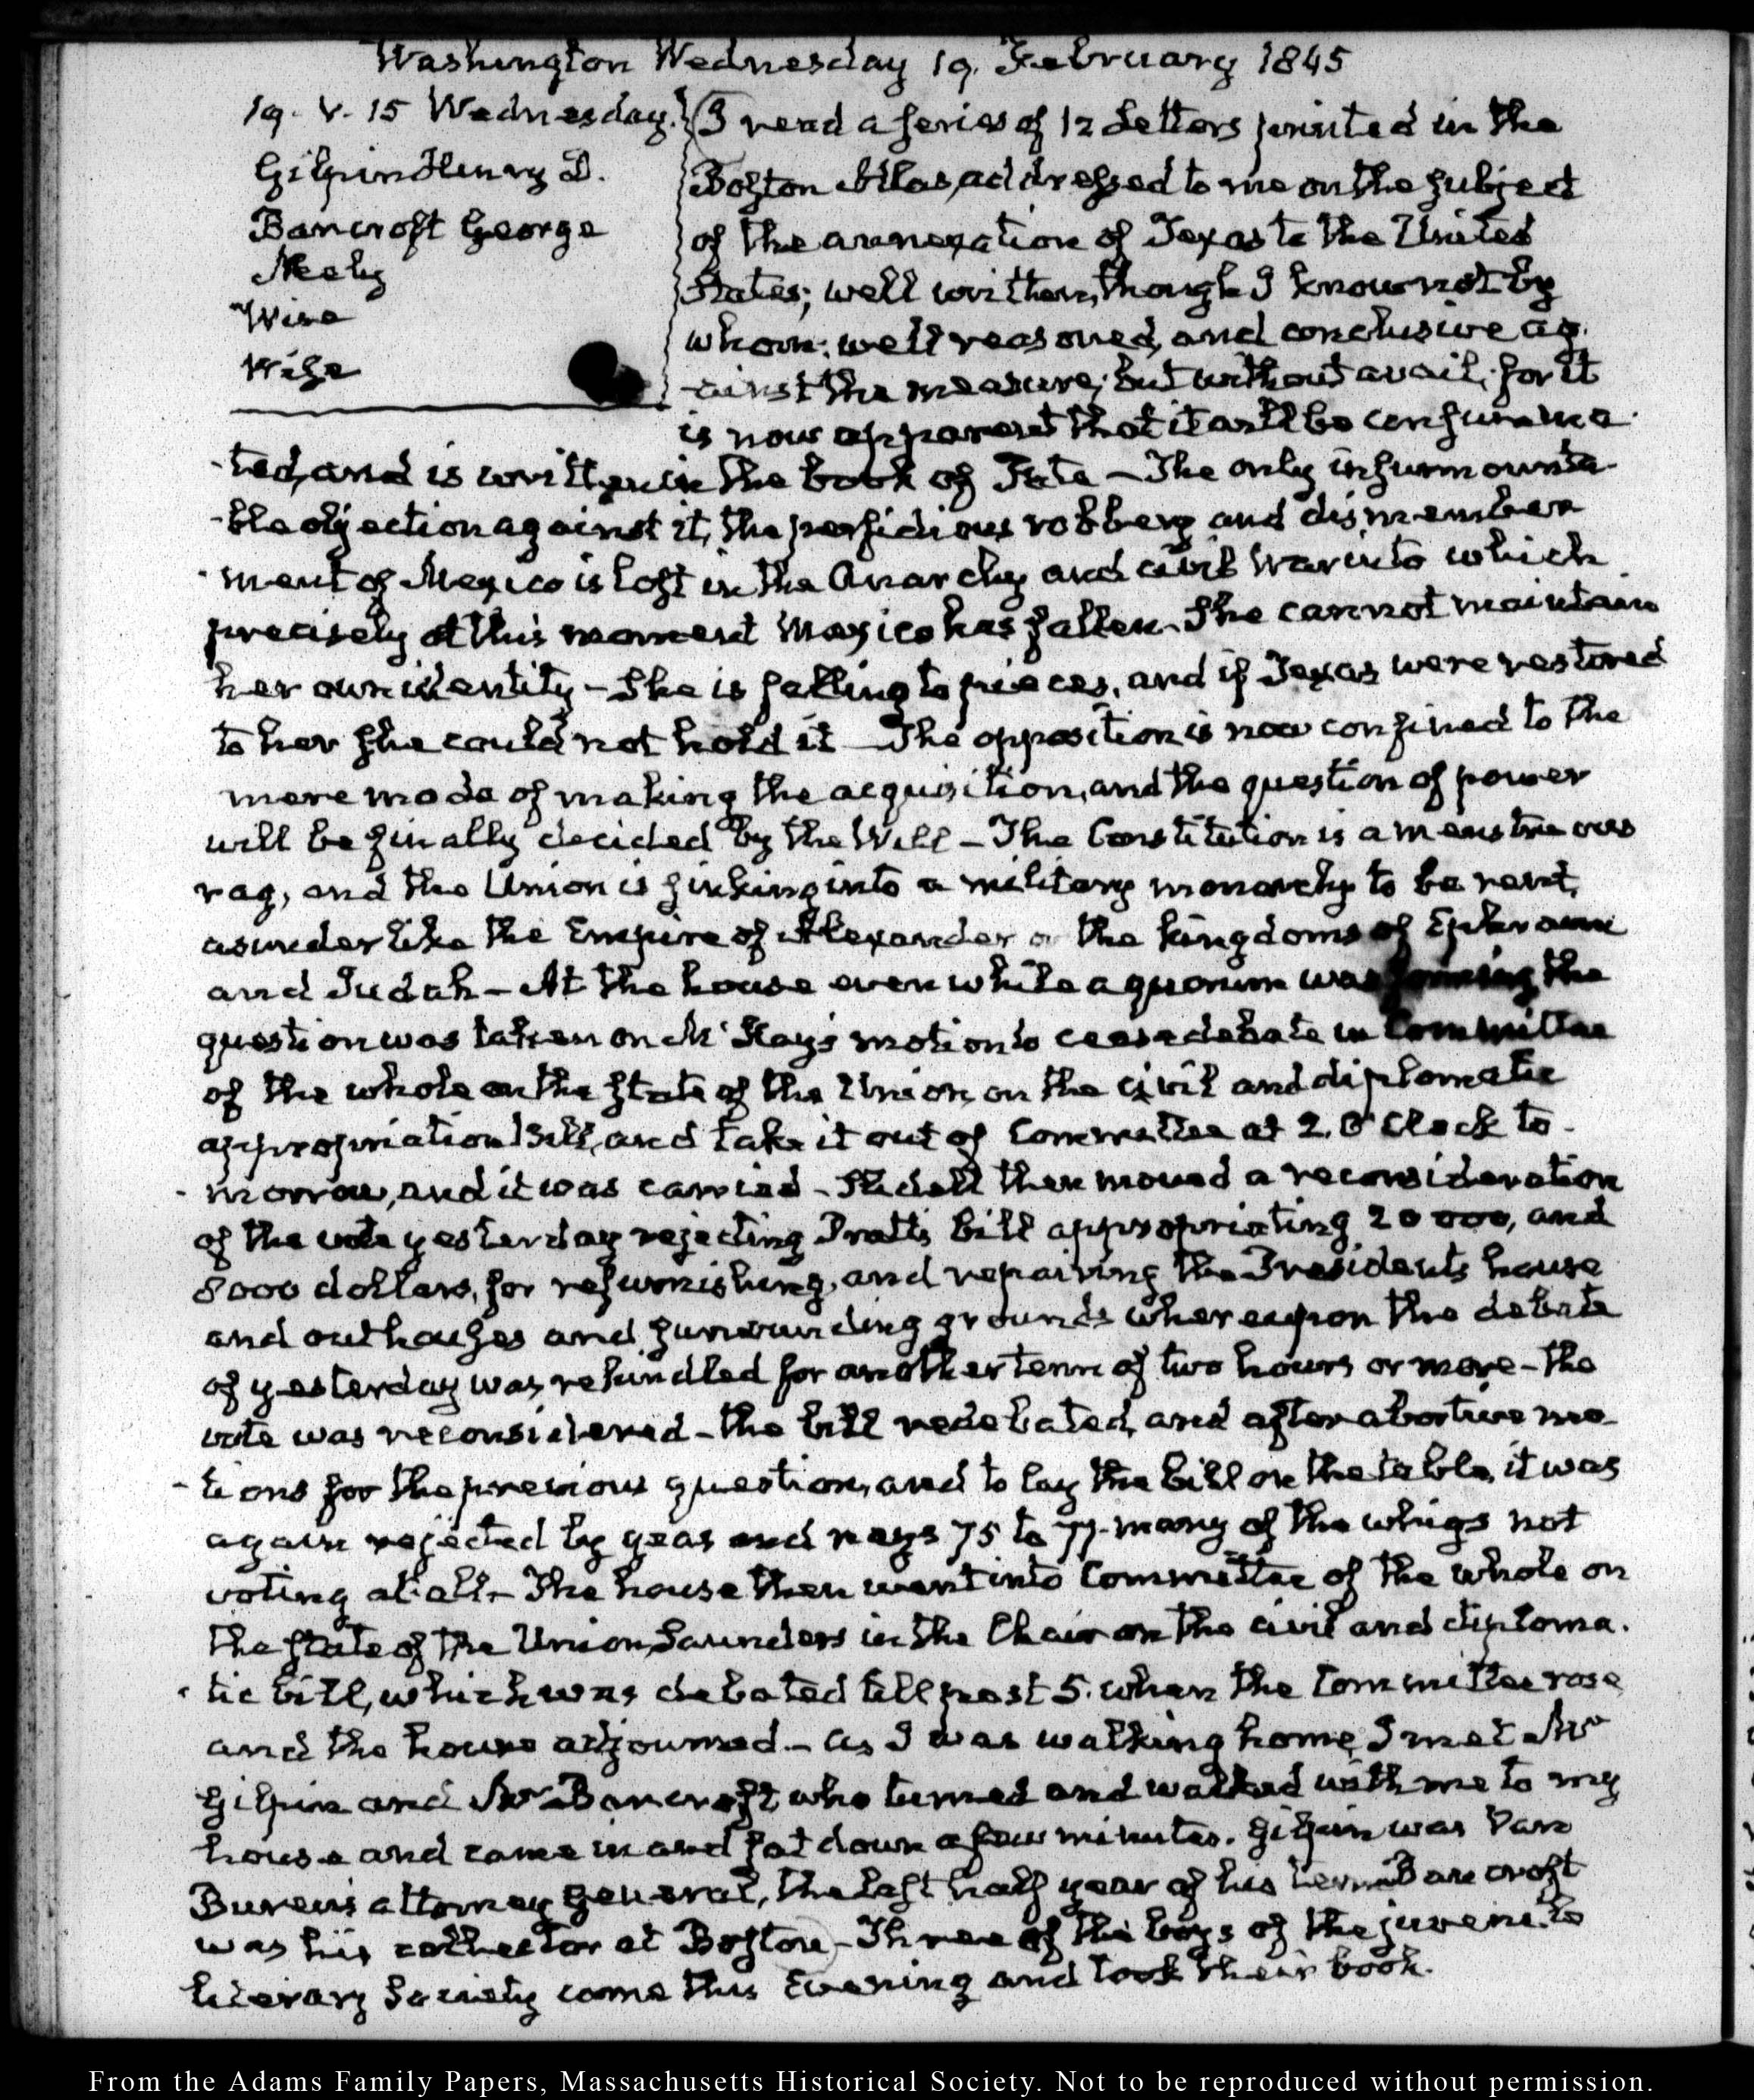 Washington Wednesday 19. February 1845
19. V. 15 Wednesday.
Gilpin Henry D.
Bancroft George
Neely
Wise
Wise
I read a series of 12 Letters printed in the
Boston Atlas, addressed to me on the subject
of the annexation of Texas to the United
States; well written, though I know not by
whom: well reasoned, and conclusive ag-
-ainst the measure; but without avail; for it
is now apparent that it will be consumma-
-ted, and is written in the book of Fate – The only insurmounta-
-ble objection against it, the perfidious robbery and dismember-
-ment of Mexico is lost in the Anarchy and civil War into which
precisely at this moment Mexico has fallen. She cannot maintain
her own identity – She is falling to pieces, and if Texas were restored
to her she could not hold it – The opposition is now confined to the
mere mode of making the acquisition, and the question of power
will be finally decided by the Will – The Constitution is a menstruous
rag, and the Union is sinking into a military monarchy to be rent
asunder like the Empire of Alexander or the kingdoms of Ephraim
and Judah – At the house even while a quorum was forming the
question was taken on McKay's motion to cease debate in Committee
of the whole on the state of the Union, on the civil and diplomatic
appropriation Bill, and take it out of Committee at 2. O'Clock to-
-morrow, and it was carried – Slidell then moved a reconsideration
of the vote yesterday rejecting Pratt's bill appropriating 20 000, and
8000 dollars, for refurnishing, and repairing the Presidents house
and outhouses and surrounding grounds whereupon the debate
of yesterday was rekindled for another term of two hours or more – the
vote was reconsidered – the bill redebated, and after abortive mo-
-tions for the previous question, and to lay the bill on the table, it was
again rejected by yeas and nays 75 to 77. many of the whigs not
voting at all – The house then went into Committee of the whole on
the state of the Union, Saunders in the Chair on the civil and diploma-
-tic bill, which was debated till past 5. when the Committee rose
and the house adjourned – As I was walking home, I met Mr
Gilpin and Mr Bancroft, who turned and walked with me to my
house and came in and sat down a few minutes. Gilpin was Van
Buren's attorney General, the last half year of his term Bancroft
was his collector at Boston – Three of the boys of the juvenile
literary Society came this Evening and took their book.
From the Adams Family Papers, Massachusetts Historical Society. Not to be reproduced without permission.